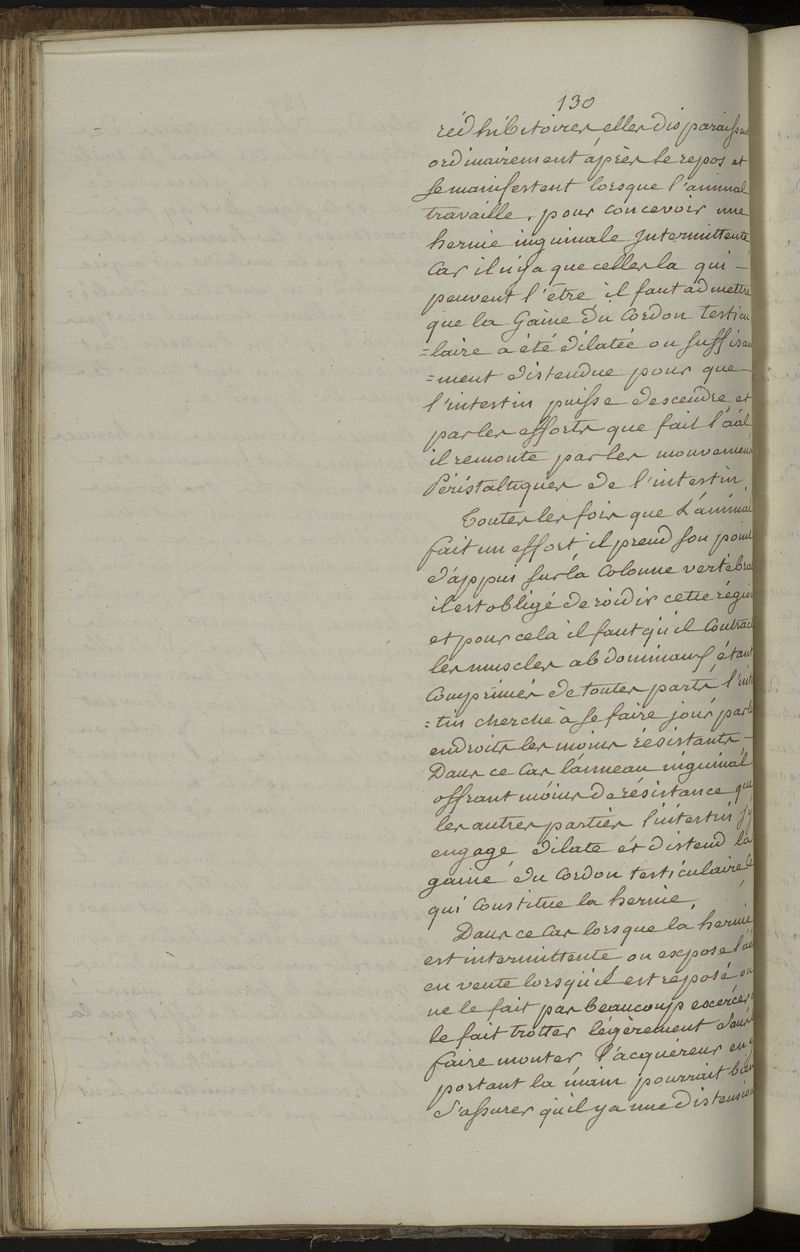 130
rédhibitoires elles disparaiss
ordinairement áprès le repos et
se manifestent lorsque l'animal
travaille, pour concevoir une
hernie inguinale Intermittente
Car il n'y a que celles la qui –
peuvent l'être il faut admettre
que la Gaine du Cordon testicu
=laire a été dilatée ou suffisam
=ment distendue pour que –
l'intestin puisse descendre et
par les efforts que fait l'aál
il remonte par les mouvemens
Péristaltiques de l'intestin.
Toutes les fois que L'ánimal
fait un effort il prend son point
d'áppui sur la Colonne vertébra
il est obligé de roidir cette région
et pour celà il faut qu'il Contrac
les muscles abdominaux étant
Comprimés de toutes parts l'intes
=tin cherche à se faire jour par le
endroits les moins résistants –
Dans ce Cas lánneau inguinal
offrant móins de résistance que
les autres parties l'intestin s'y
engage dilate ét distend la
gaine du cordon testiculaire Ce
qui Constitue la hernie,
Dans ce Cas lorsque la hernie
est intermittente on expose l'aá
en vente lorsqu'il est reposé on
ne le fait pas beaucoup excercer
le fait trotter légèrement Sans
faire monter l'acquéreur en y
portant la main pourrait bien
S'assurer qu'il y a une distension